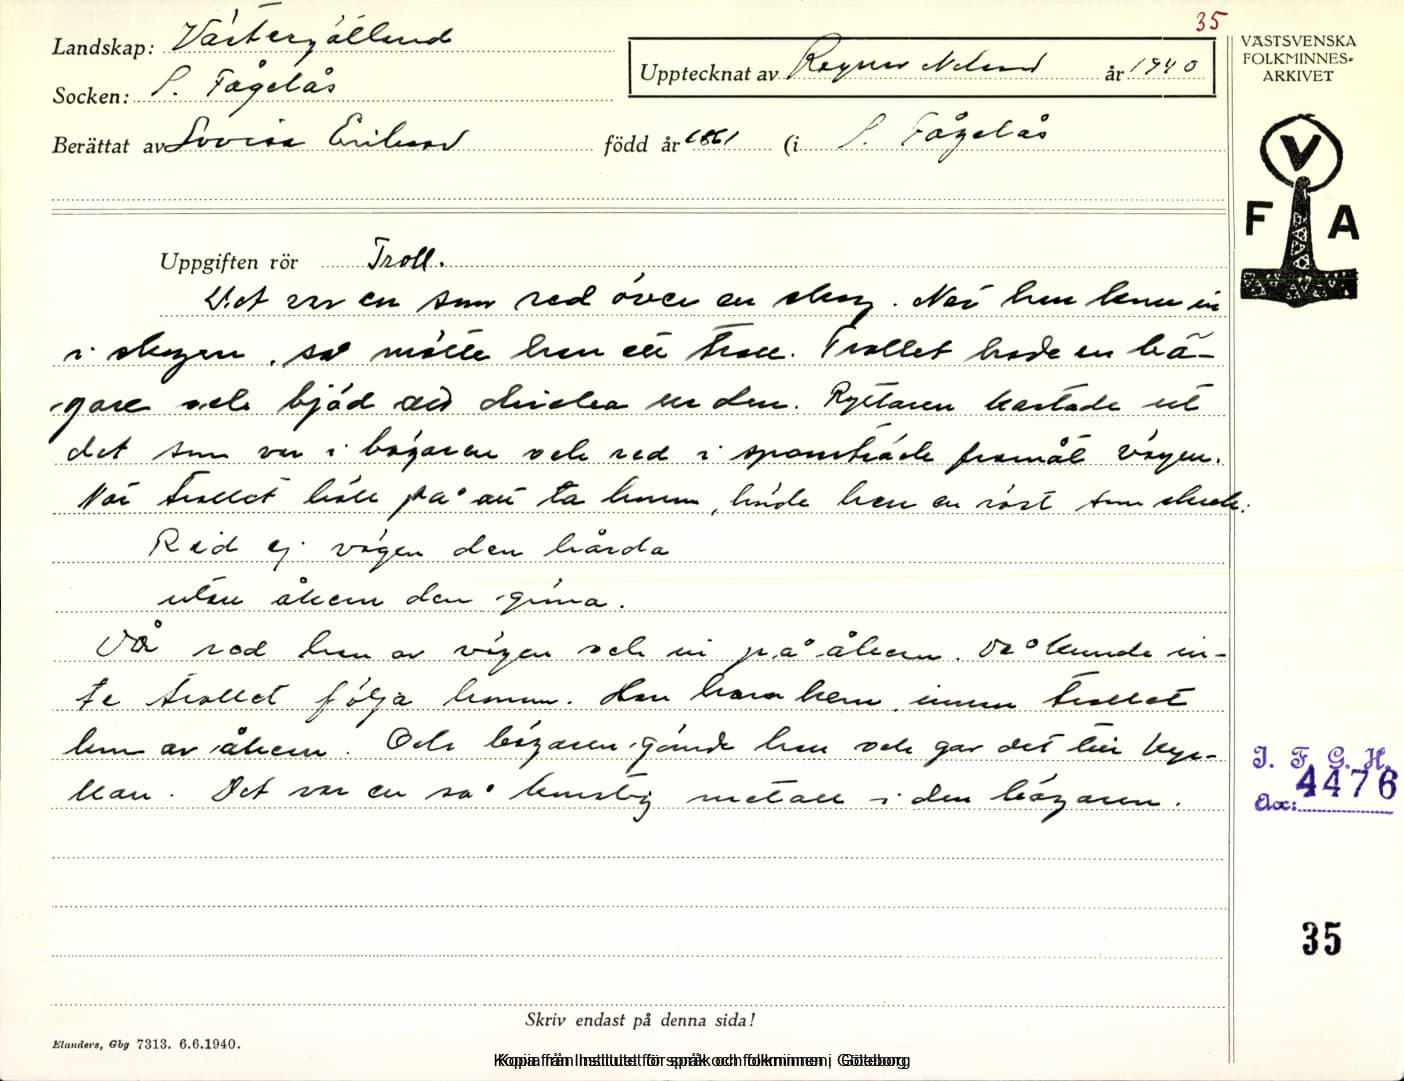 35
Landskap: Västergötland
Socken: S. Fågelås
Upptecknat av Ragnar Nilsson år 1940
Berättat av Lovisa Eriksson född år 1861 (i S. Fågelås
VÄSTSVENSKA
FOLKMINNES-
ARKIVET
V
F A
Uppgiften rör Troll.
Det var en som red över en skog. När han kom in
i skogen, så mötte han ett troll. Trollet hade en bä-
gare och bjöd att dricka ur den. Ryttaren kastade ut
det som var i bägaren och red i sporrsträck framåt vägen.
När trollet höll på att ta honom, hörde han en röst som skrek:
Rid ej vägen den hårda
utan åkern den gröna.
Då red han av vägen och in på åkern. Då kunde in-
te trollet följa honom. Han hann hem, innan trollet
kom av åkern. Och bägaren gömde han och gav det till kyr-
kan. Det var en så konstig metall i den bägaren.
I. F. G. H.
4476
Acc:
35
Skriv endast på denna sida!
Elanders, Gbg 7313. 6.6.1940.
Kopia från Institutet för språk och folkminnen, Göteborg